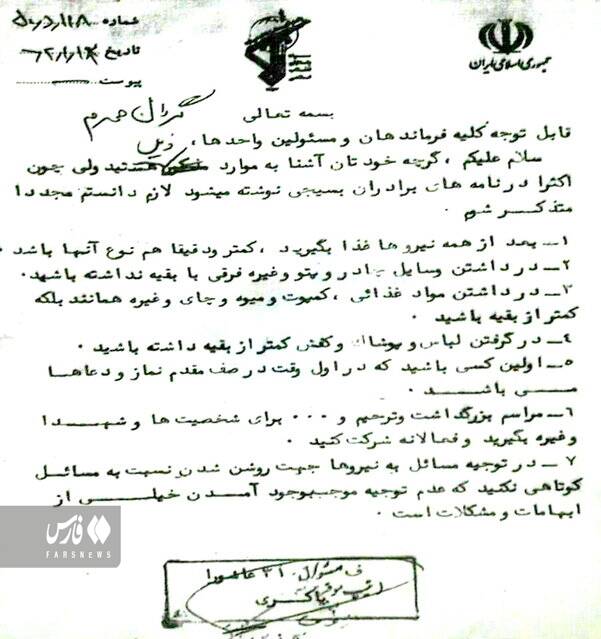 جمهوری اسلامی ایران
شماره
تاریخ
پیوست
بسمه تعالی
گردان محرم
قابل توجه کلیه فرماندهان و مسئولین واحدها،
سلام علیکم، گرچه خودتان آشنا به موارد ذیل هستید ولی چون
اکثرا در نامه های برادران بسیجی نوشته میشود لازم دانستم مجددا
متذکر شوم.
۱ــ بعد از همه نیروها غذا بگیرید، کمتر و دقیقا هم نوع آنها باشد.
۲ــ در داشتن وسایل چادر و پتو وغیره فرقی با بقیه نداشته باشید.
۳ــ در داشتن مواد غذائی، کمپوت و میوه و چای وغیره همانند بلکه
کمتر از بقیه باشید.
۴ــ در گرفتن لباس و پوشاک وکفش کمتر از بقیه داشته باشید.
۵ــ اولین کسی باشید که در اول وقت در صف مقدم نماز و دعاها
می باشد.
۶ــ مراسم بزرگداشت وترحیم و ... برای شخصیت ها و شهدا
وغیره بگیرید و فعالانه شرکت کنید.
۷ــ در توجیه مسائل به نیروها جهت روشن شدن نسبت به مسائل
کوتاهی نکنید که عدم توجیه موجب بوجود آمدن خیلی از
ابهامات و مشکلات است.
مسئول ۳۱ عاشورا
باکری
فارس
FARSNEWS